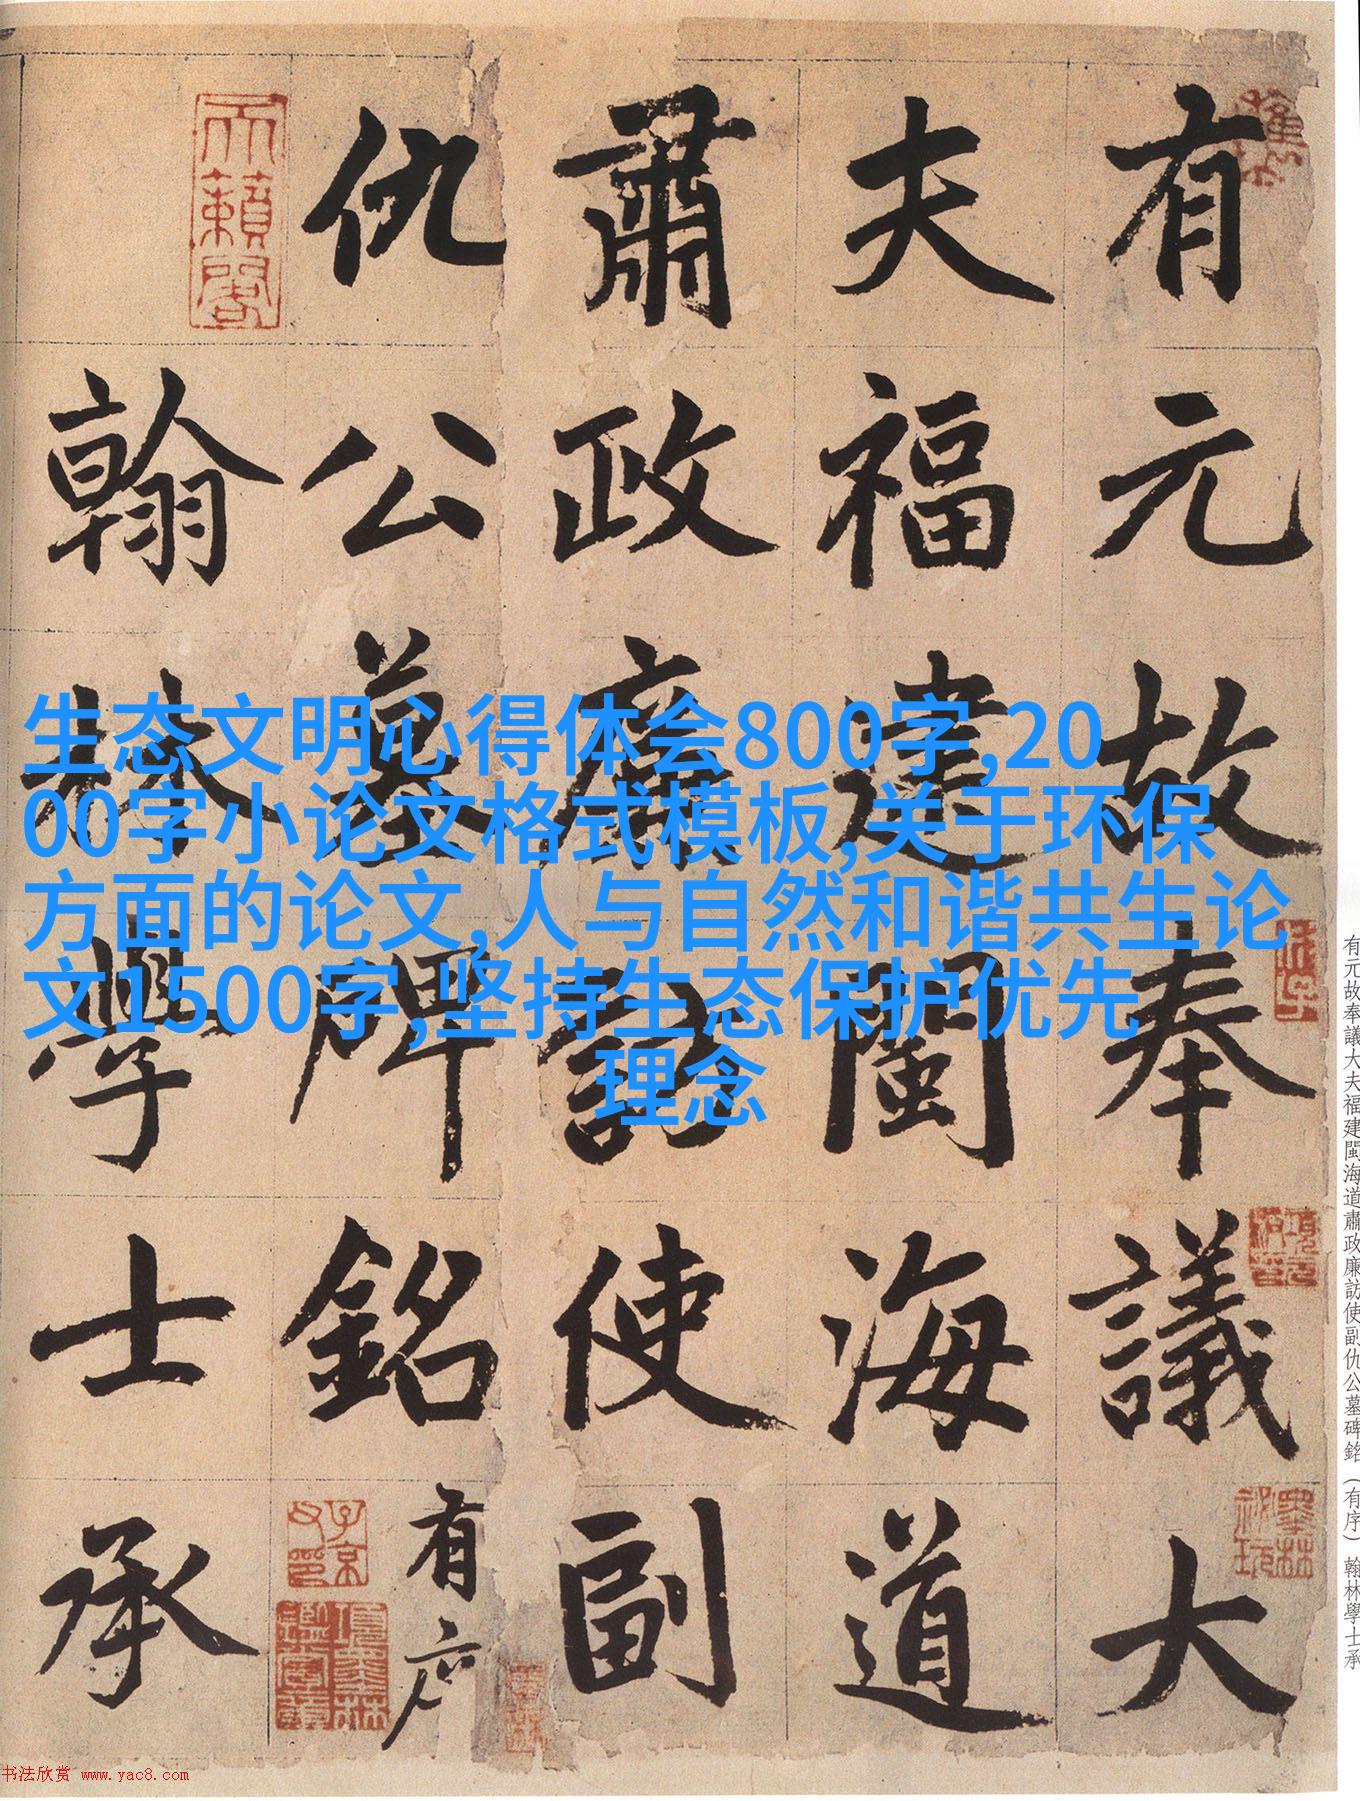 有元故奉議大
夫福建閩海道
肅政廉訪使副
仇公墓碑銘有序
翰林學士承
天籟閣
子京父印
項元汴印
墨林祕玩
項墨林鑑賞章
生态文明心得体会800字,20
00字小论文格式模板,关于环保
方面的论文,人与自然和谐共生论
文1500字,坚持生态保护优先
理念
有元故奉議大夫福建閩海道肅政廉訪使副仇公墓碑銘（有序）翰林學士承
书法欣赏 www.yac8.com